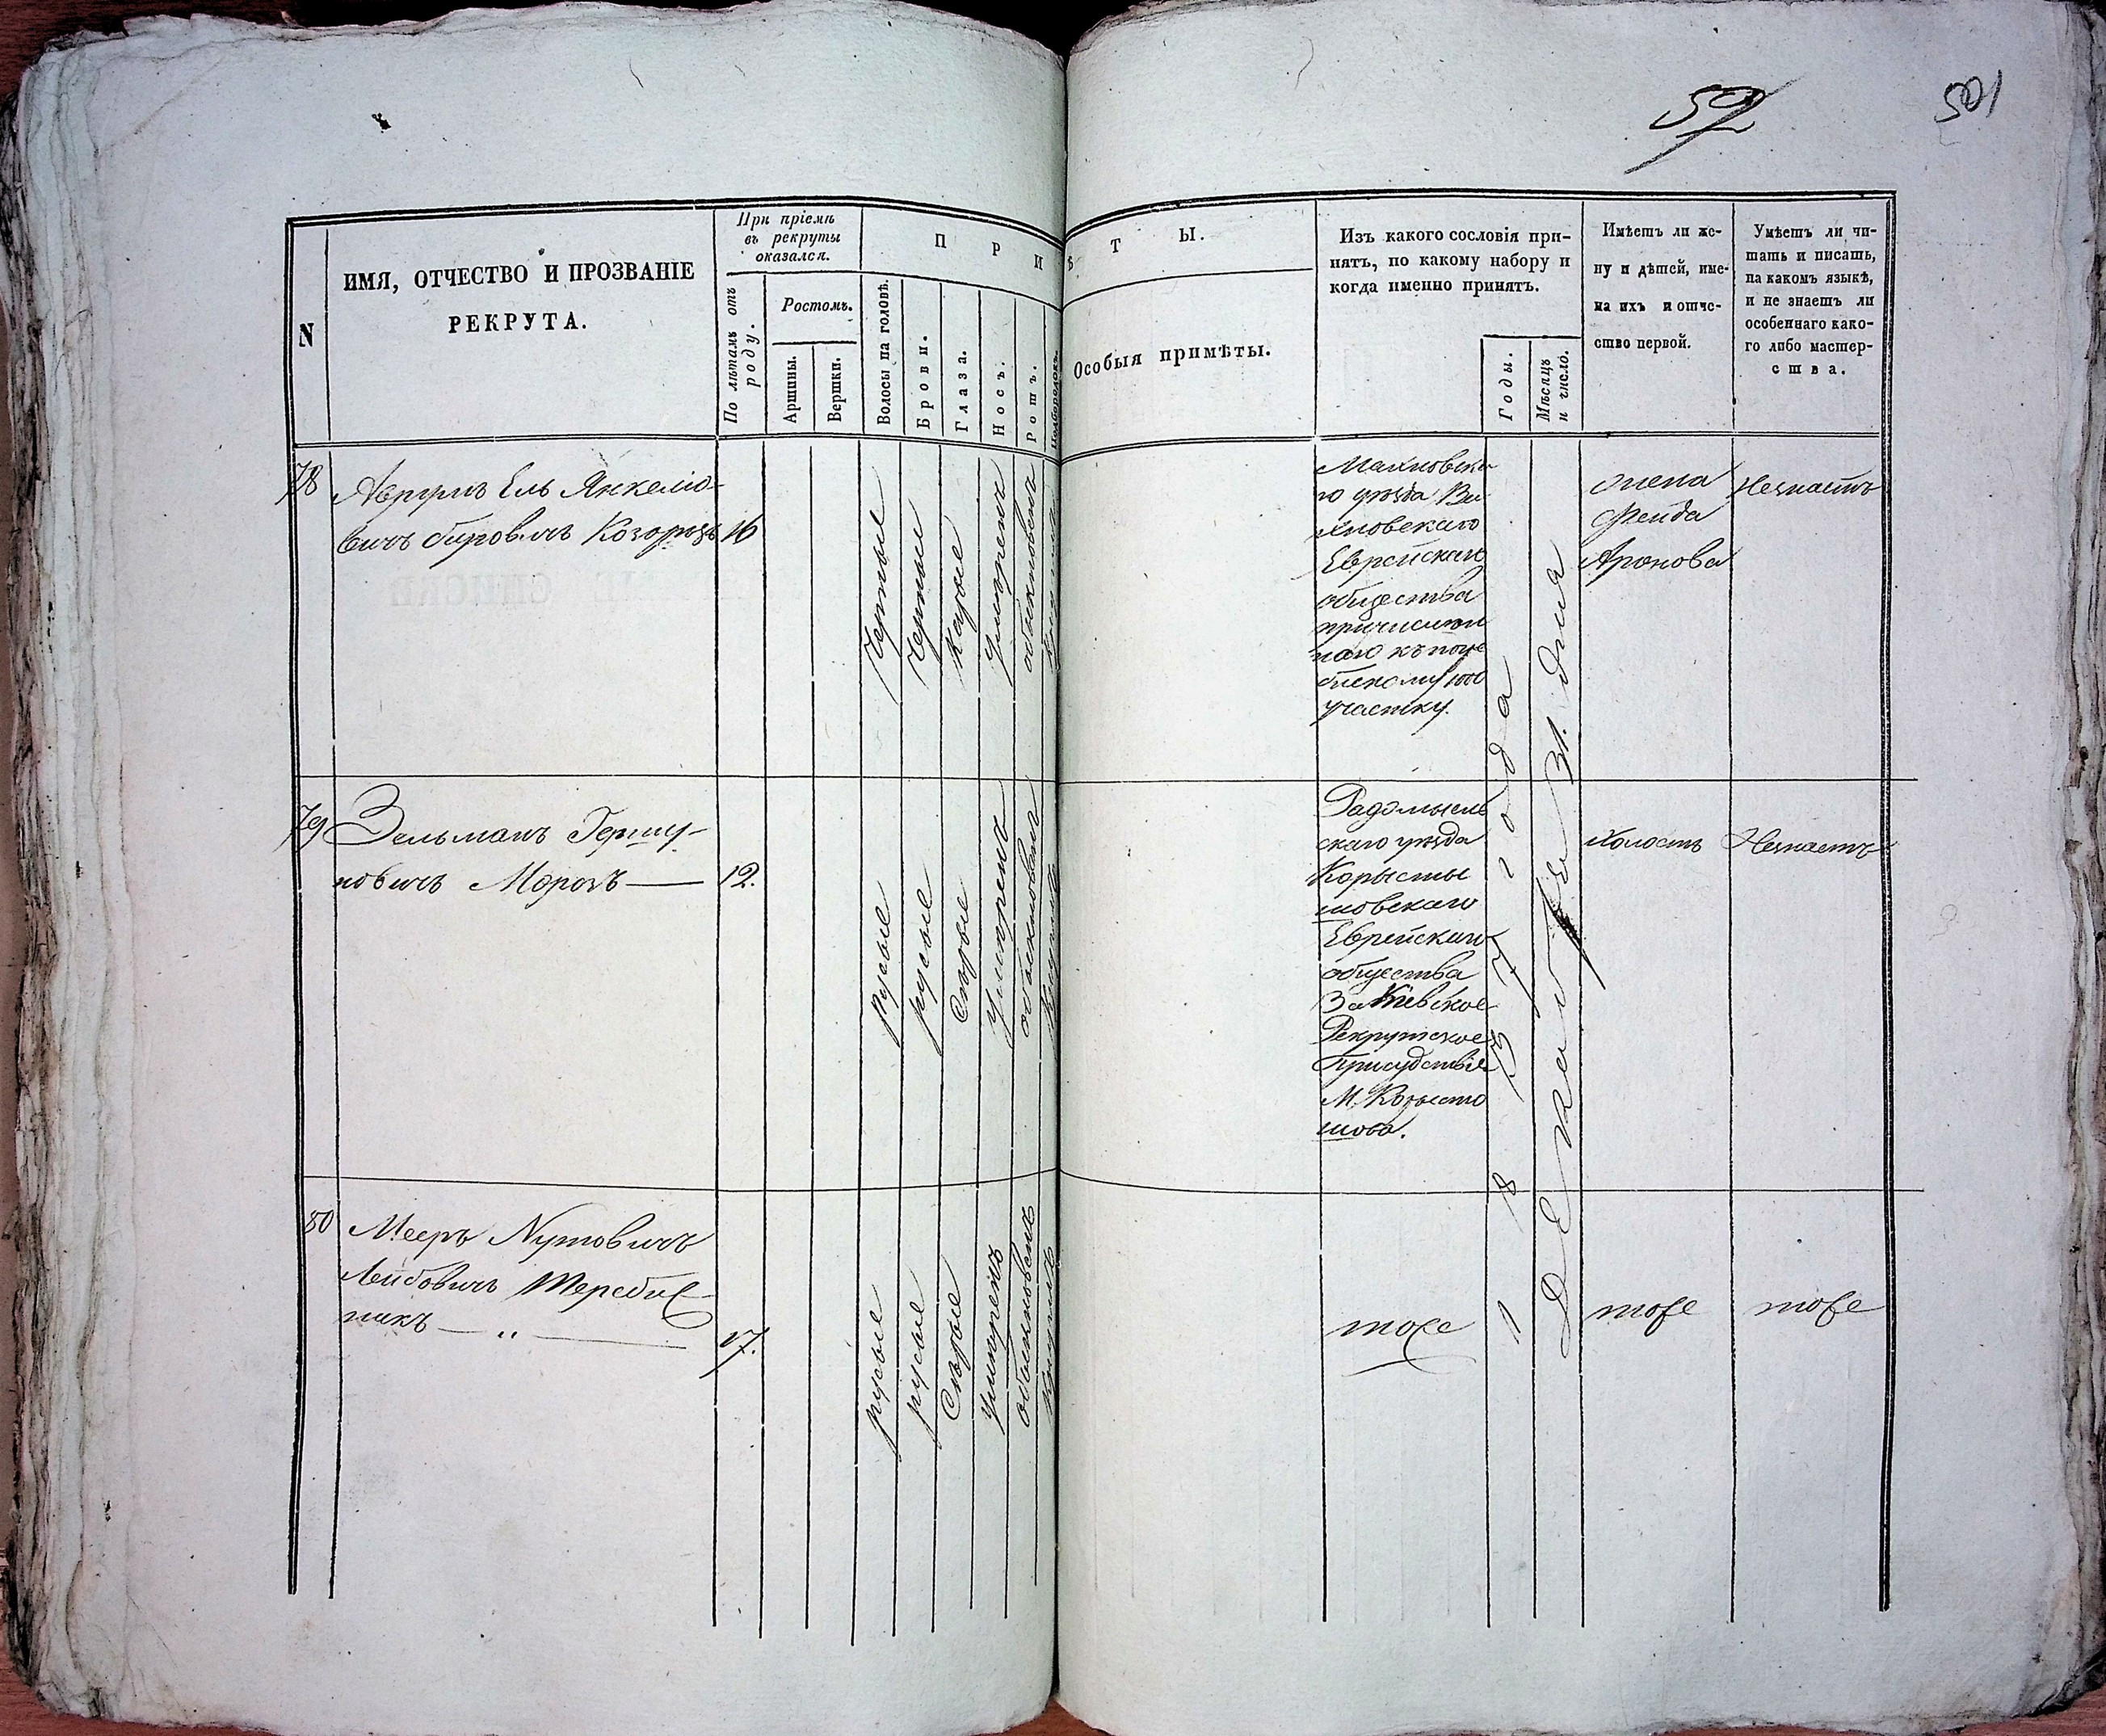 57
501
N
ИМЯ, ОТЧЕСТВО И ПРОЗВАНІЕ
РЕКРУТА.
При пріемѣ
въ рекруты
оказался.
По лѣтамъ отъ
роду.
Ростомъ.
Аршины.
Вершки.
П Р И
Волосы на головѣ.
Брови.
Глаза.
Носъ.
Ротъ.
Подбородокъ.
Ѣ Т Ы.
Особыя примѣты.
Изъ какого сословія при-
нятъ, по какому набору и
когда именно принятъ.
Годы.
Мѣсяцъ
и число.
Имѣетъ ли же-
ну и дѣтей, име-
на ихъ и отче-
ство первой.
Умѣетъ ли чи-
тать и писать,
на какомъ языкѣ,
и не знаетъ ли
особеннаго како-
го либо мастер-
ства.
78
Аврумъ Ель Янкеліо-
вичъ
16
Черные
Черные
Каріе
Умѣренъ
обыкновенъ
го уѣзда
хновскаго
Еврейскаго
общества
участку.
жена
Фейда
Аронова
Незнаетъ
79
Зельманъ Гершу-
новичъ Морозъ
12.
русые
русые
Сѣрые
Умѣренъ
обыкновенъ
Радомысль
скаго уѣзда
Коросты
шовскаго
Еврейскаго
общества
За Кіевское
Рекрутское
Присудствіе
М. Коросты
шова.
Холостъ
Незнаетъ
80
Мееръ Нутовичъ
Лейбовичъ
никъ — „ —
17.
русые
русые
Сѣрые
Умѣренъ
обыкновенъ
тоже
1 8 5 4 года
Декабря 31. дня
тоже
тоже